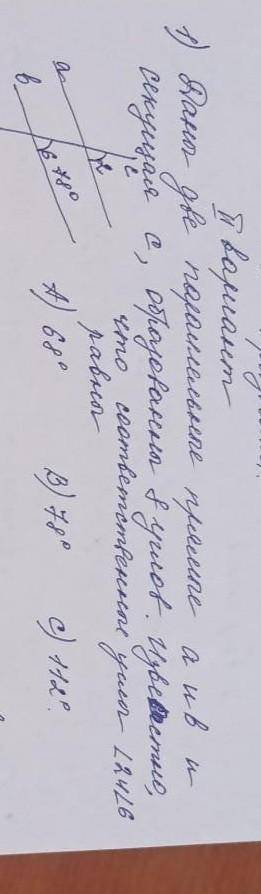 II вариант
1) Даны две параллельные прямые a и в и
секущая c, образованы 8 углов. Известно,
что соответственные углы ∠2 и ∠6
равны
a
в
c
2
6 78°
A) 68° B) 78° C) 112°.